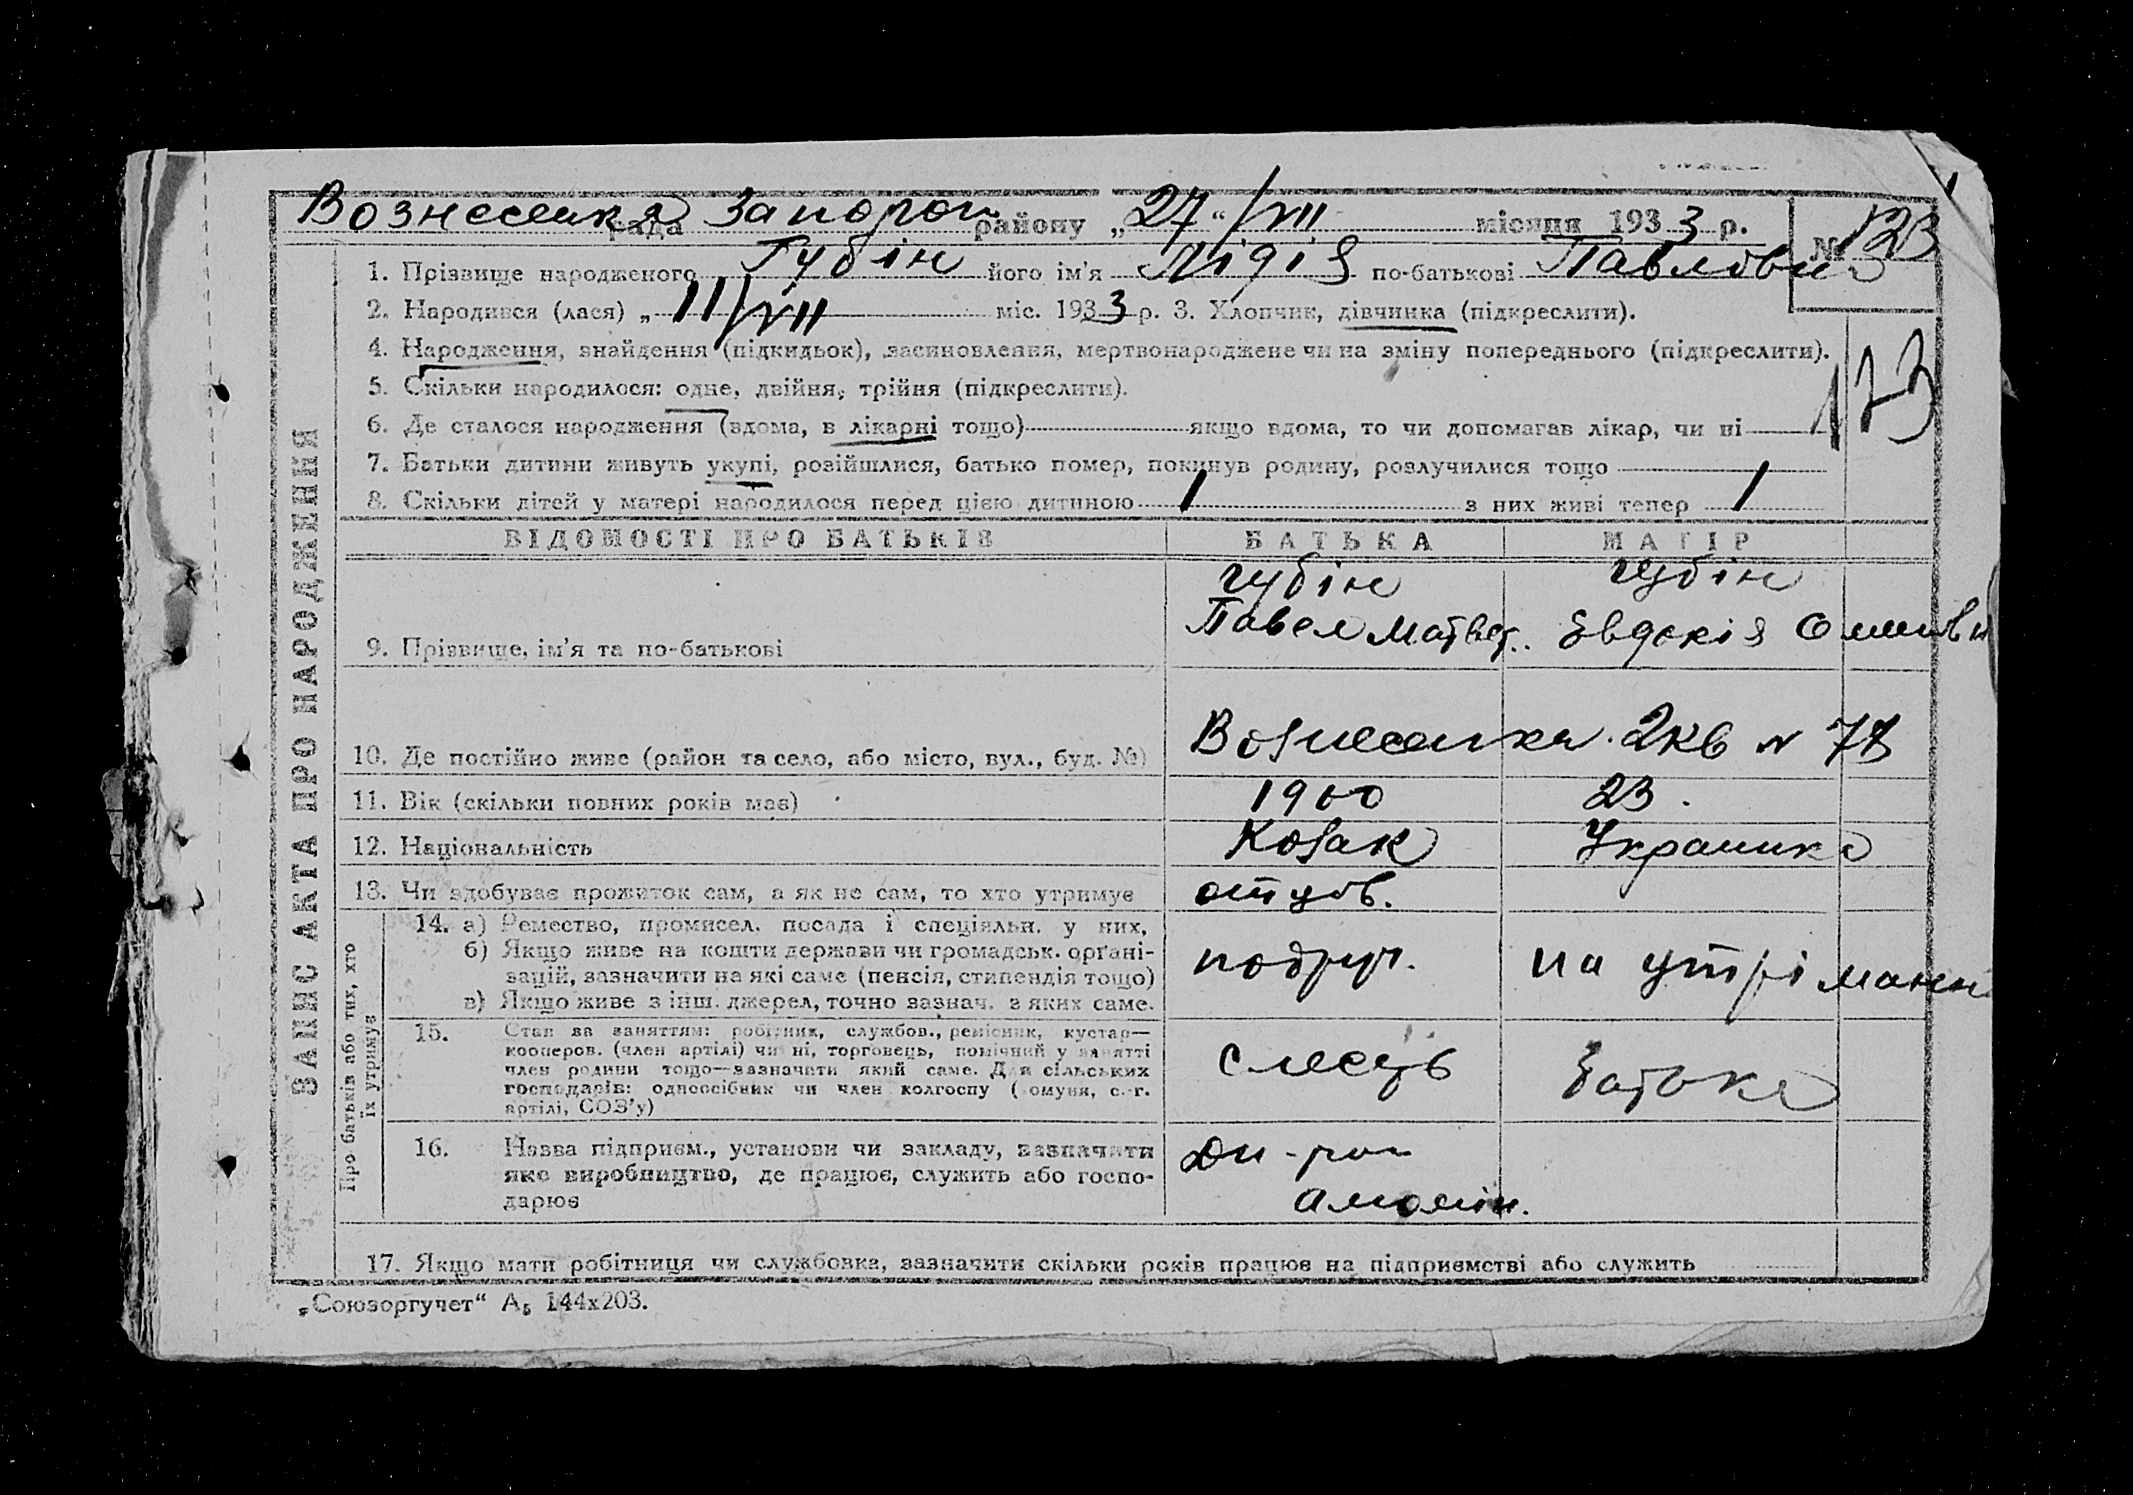 Вознесенка рада Запорож району „27“ /VII місяця 1933 р. № 123
1. Прізвище народженого Губін його ім'я Лідія по-батькові Павловна
2. Народився (лася) „11/VII міс. 1933 р. 3. Хлопчик, дівчинка (підкреслити).
4. Народження, знайдення (підкидьок), засиновлення, мертвонароджене чи на зміну попереднього (підкреслити).
5. Скільки народилося: одне, двійня, трійня (підкреслити).
6. Де сталося народження (вдома, в лікарні тощо) якщо вдома, то чи допомагав лікар, чи ні
123
7. Батьки дитини живуть укупі, розійшлися, батько помер, покинув родину, розлучилися тощо
8. Скільки дітей у матері народилося перед цією дитиною 1 з них живі тепер 1
ЗАПИС АКТА ПРО НАРОДЖЕННЯ
ВІДОМОСТІ ПРО БАТЬКІВ БАТЬКА МАТІР
Губін Губін
Павел Матвег.. Евдокія
9. Прізвище, ім'я та по-батькові
Вознесенка. 2кв № 78
10. Де постійно живе (район та село, або місто, вул., буд. №)
11. Вік (скільки повних років має) 1900 23.
12. Національність Козак Украинка
13. Чи здобуває прожиток сам, а як не сам, то хто утримує
Про батьків або тих, хто їх утримує
14. а) Ремество, промисел. посада і спеціяльн. у них,
б) Якщо живе на кошти держави чи громадськ. орґані-
зацій, зазначити на які саме (пенсія, стипендія тощо)
в) Якщо живе з інш. джерел, точно зазнач. з яких саме.
подруч. на утріманн
15. Стан за заняттям: робітник, службов., ремісник, кустар—
кооперов. (член артілі) чи ні, торговець, помічний у занятті
член родини тощо—зазначити який саме. Для сільських
господарів: одноосібник чи член колгоспу (комуня, с.-г.
артілі, СОЗ'у)
слесарь Батька
16. Назва підприєм., установи чи закладу, зазначити
яке виробництво, де працює, служить або госпо-
дарює
алюмін.
17. Якщо мати робітниця чи службовка, зазначити скільки років працює на підприємстві або служить
„Союзоргучет“ А₅ 144х203.